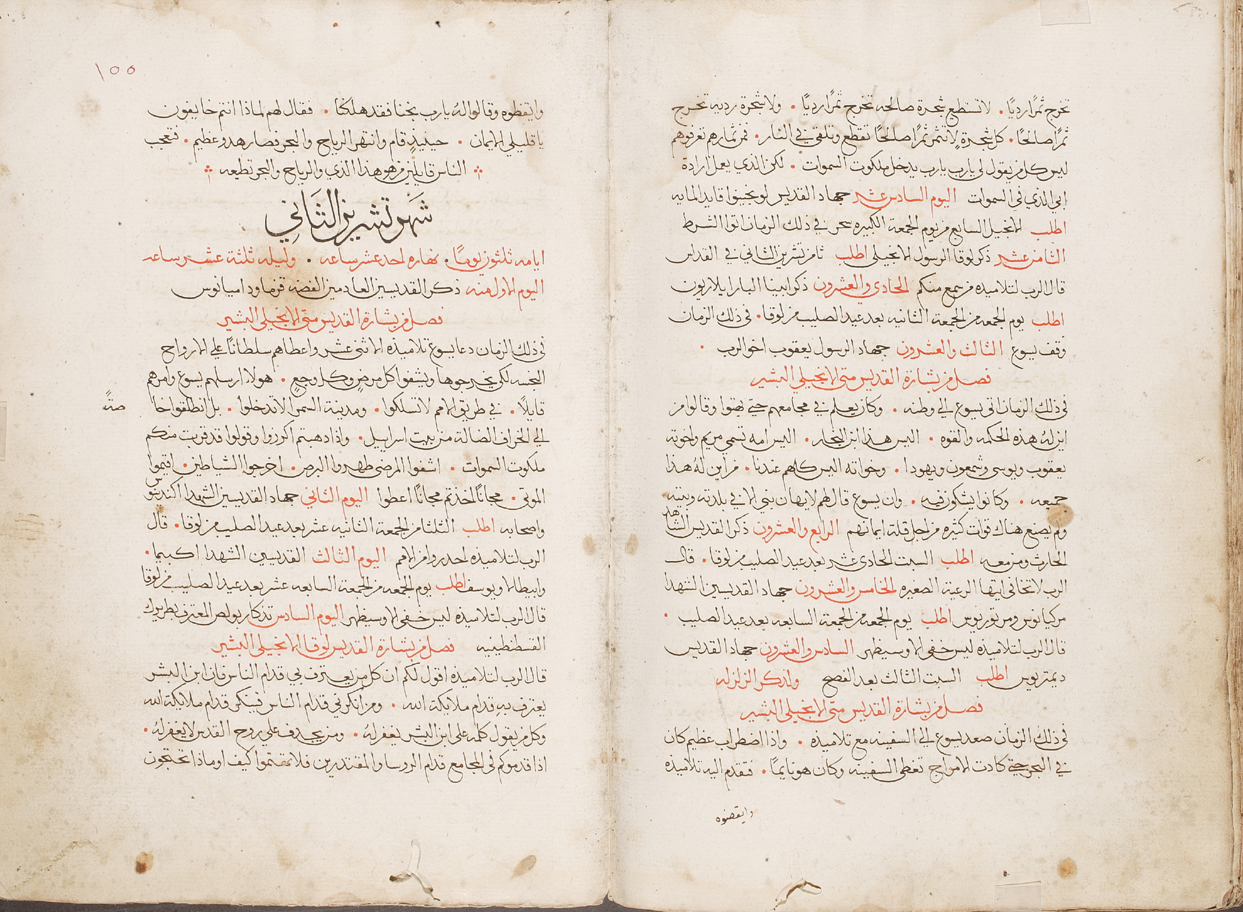 تخرج ثمرًا رديًا. لا تستطيع شجرة صالحه تخرج ثمرًا رديًا. ولا شجرة رديه تخرج
ثمرًا صالحًا. كل شجرة لا تثمر ثمرًا صالحًا تقطع وتلقى في النار. فمن ثمارهم تعرفوهم
ليس كل من يقول لي يارب يارب يدخل ملكوت السموات. لكن الذي يعمل ارادة
ابي الذي في السموات اليوم السادس عشر جهاد القديس لونجينوا قايد المايه
اطلب الانجيل السابع من يوم الجمعة الكبيره نحن في ذلك الزمان اتوا الشرط
الثامن عشر ذكر لوقا الرسول الانجيلي اطلب ثامن تشرين الثاني في القداس
قال الرب لتلاميذه من سمع منكم الحادي والعشرون ذكر ابينا البار ايلاريون
اطلب يوم الجمعه من الجمعة الثانيه بعد عيد الصليب من لوقا. في ذلك الزمان
وقف يسوع الثالث والعشرون جهاد الرسول يعقوب اخو الرب.
فصل من بشارة القديس متى الانجيلي البشير
في ذلك الزمان اتى يسوع الى وطنه. وكان يعلم في مجامعهم حتى بهتوا وقالوا من
اين له هذه الحكمه والقوه. اليس هذا ابن النجار. اليس امه تسمى مريم واخوته
يعقوب ويوسى وشمعون ويهودا. واخواته اليس كلهم عندنا. من اين له هذا
جميعه. وكانوا يشكون فيه. وان يسوع قال لهم لا يهان نبي الا في بلدته وبيته
ولم يصنع هناك قوات كثيره من اجل قلة ايمانهم الرابع والعشرون ذكر القديس الشاهد
الحارث ومن معه اطلب السبت الحادي عشر بعد عيد الصليب من لوقا. قال
الرب لا تخافي ايتها الرعية الصغيره الخامس والعشرون جهاد القديسين الشهدا
مركيانوس ومرتوريوس اطلب يوم الجمعه من الجمعة السابعه بعد عيد الصليب.
قال الرب لتلاميذه ليس خفي الا وسيظهر السادس والعشرون جهاد القديس
ديمتريوس اطلب السبت الثالث بعد الفصح ولذكر الزلزله
فصل من بشارة القديس متى الانجيلي البشير
في ذلك الزمان صعد يسوع الى السفينه مع تلاميذه. واذا اضطراب عظيم كان
في البحر حتى كادت الامواج تغطي السفينه وكان هو نايمًا. فتقدم اليه تلاميذه
وايقضوه
١٥٥
وايقظوه وقالوا له يارب نجنا فقد هلكنا. فقال لهم لماذا انتم خايفون
يا قليلي الايمان. حينيذٍ قام وانتهر الرياح والبحر فصار هدو عظيم. فتعجب
الناس قايلين من هو هذا الذي والرياح والبحر تطعه
شهر تشرين الثاني
ايامه ثلثون يومًا. نهاره احد عشر ساعه. وليله ثلثة عشر ساعه
اليوم الاول منه ذكر القديسين العادمين الفضه قزما وداميانوس
فصل من بشارة القديس متى الانجيلي البشير
في ذلك الزمان دعا يسوع تلاميذه الاثني عشر واعطاهم سلطانًا على الارواح
النجسه لكي يخرجوها ويشفوا كل مرض وكل وجع. هولاء ارسلهم يسوع وامرهم
قايلًا. في طريق الامم لا تسلكوا. ومدينة السمرا لا تدخلوا. بل انطلقوا خاصةً
الى الخراف الضالة من بيت اسراييل. واذا ذهبتم اكرزوا وقولوا قد قربت منكم
ملكوت السموات. اشفوا المرضى طهروا البرص. اخرجوا الشياطين. اقيموا
الموتى. مجانًا اخذتم مجانًا اعطوا اليوم الثاني جهاد القديسين الشهدا
واصحابه اطلب الثلثا من الجمعة الثانيه عشر بعد عيد الصليب من لوقا. قال
الرب لتلاميذه احذروا من الامم اليوم الثالث القديسين الشهدا اكبيما.
وايطالا ويوسف اطلب يوم الجمعه من الجمعة السابعه عشر بعد عيد الصليب من لوقا
قال الرب لتلاميذه ليس خفي الا وسيظهر اليوم السادس تذكار بولص المعترف بطريرك
القسطنطينيه فصل من بشارة القديس لوقا الانجيلي البشير
قال الرب لتلاميذه اقول لكم ان كل من يعترف بي قدام الناس فان ابن البشر
يعترف به قدام ملايكة الله. ومن انكرني قدام الناس ينكر قدام ملايكة الله
وكل من يقول كلمه على ابن البشر يغفر له. ومن يجدف على روح القدس لا يغفر له.
اذا قدموكم في المجامع قدام الروسا والمقتدرين فلا تهتموا كيف او بماذا تحتجون